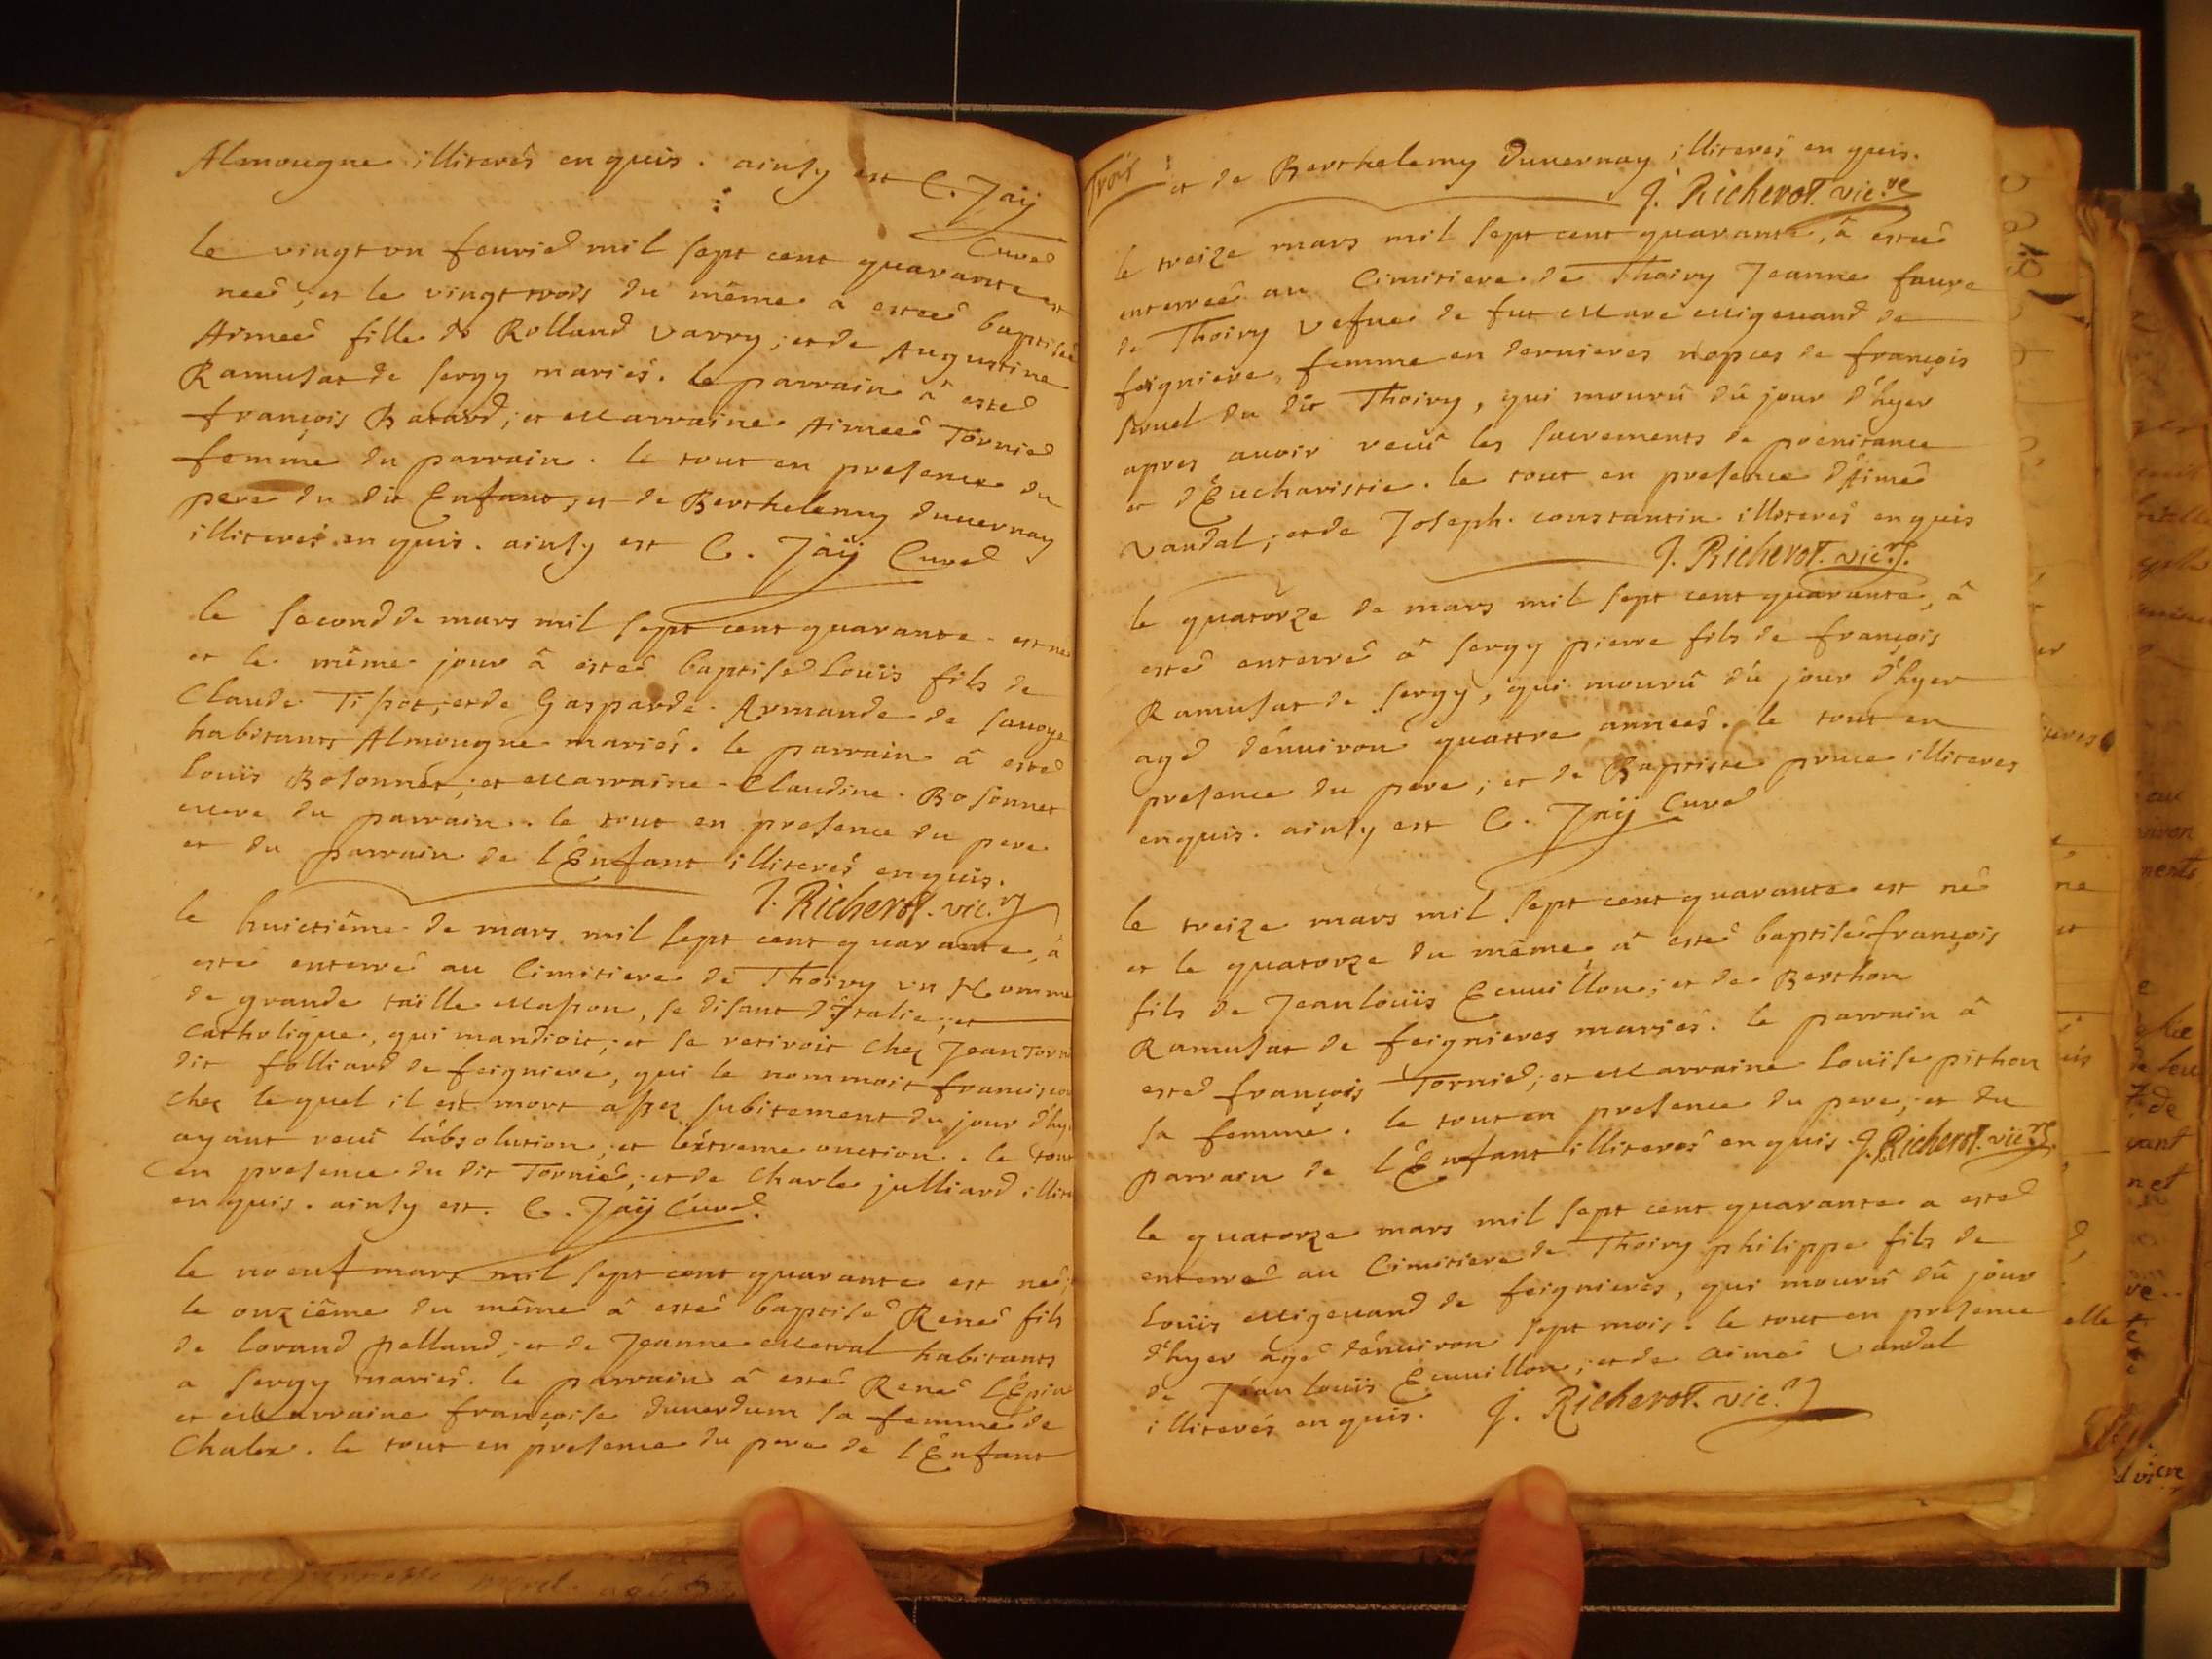 Almougne illiterés enquis. ainsy est C. Jaÿ
Curé
le vingt un feuried mil sept cent quarante est
neeé, et le vingt trois du même a esteé baptisée
Aimeé fille de Rolland Varry; et de Augustine
Ramusat de sergy mariés. le parrain â ested
françois Batard; et Marraine Aimeé Tornied
femme du parrain. le tout en presence du
pere du dit Enfant, et de Berthelemy Duuernay
illiterés enquis. ainsy est C. Jaÿ Cured
le second de mars mil sept cent quarante est né
et le même jour â esteé baptised Louïs fils de
Claude Tissot, et de Gasparde Armande de sauoye
habitants Almougne mariés. le parrain â ested
Louïs Bosonnet; et Marraine Claudine Bosonnet
mere du parrain. le tout en presence du pere
et du parrain de l'Enfant illiterés enquis.
J. Richerot. vic.re
le huictiême de mars mil sept cent quarante, â
esté enterré au Cimitiere de Thoiry un Homme
de grande taille Masson, se disant d'Italie; et
Catholique, qui mandioit; et se retiroit chez Jean Torni
dit folliard de feigniere, qui le nommoit francis
chez lequel il est mort assez subitement du jour d'hy
ayant reuû l'absolution, et l'extreme onction. le tout
en presence du dit Tornié; et de Charle julliard illit
enquis. ainsy est. C. Jaÿ Cured.
le noeuf mars mil sept cent quarante est né;
le onziême du même â esté baptised René fils
de Lorand pelland; et de Jeanne Metral habitants
a sergy mariés. le parrain â esté René l'Epin
et Marraine françoise Duuerdum sa femme de
Chalex. le tout en presence du pere de l'Enfant
Trois
et de Berthelemy Duuernay illiterés enquis.
J. Richerot. vic.re
le treize mars mil sept cent quarante, â esteé
enterreé au Cimitiere de Thoiry Jeanne faure
de Thoiry Vefue de fut Marc Migeuand de
feigniere, femme en dernieres nopces de françois
du dit Thoiry, qui mourû dû jour d'hyer
apres auoir reuû les sacrements de poenitance
et d'Eucharistie. le tout en presence d'Aimé
Vandal; et de Joseph constantin illiterés enquis
J. Richerot. vic.re
le quatorze de mars mil sept cent quarante, â
esté enterré â sergy pierre fils de françois
Ramusat de sergy, qui mourû dû jour d'hyer
agé d'enuiron quattre anneés. le tout en
presence du pere; et de Baptiste pruce illiteres
enquis. ainsy est C. Jaÿ Cured
le treize mars mil sept cent quarante est né
et le quatorze du même, â esté baptisé françois
fils de Jean louïs Ecuuillon; et de Berthon
Ramusat de feignieres mariés. le parrain â
ested françois Tornied; et Marraine Louïse pithon
sa femme. le tout en presence du pere, et du
parrain de l'Enfant illiterés enquis J. Richerot. vic.re
le quatorze mars mil sept cent quarante a ested
enterred au Cimitiere de Thoiry philippe fils de
Louïs Migeuand de feignieres, qui mourû dû jour
d'hyer agé d'enuiron sept mois. le tout en presence
de Jean louïs Ecuuillon; et de aimé Vandal
illiterés enquis. J. Richerot. vic.re